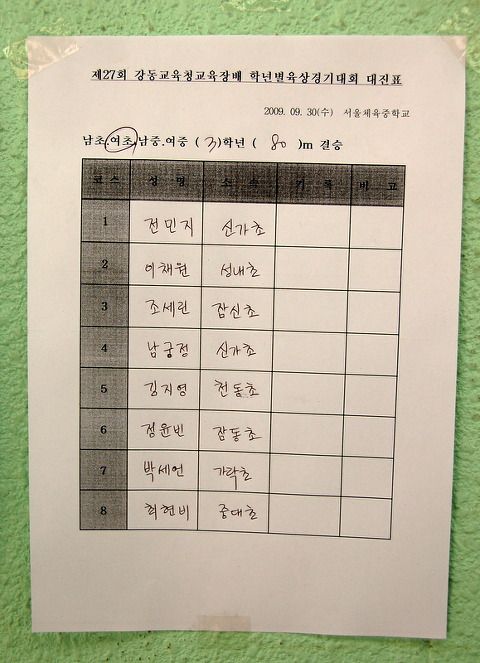 제27회 강동교육청교육장배 학년별육상경기대회 대진표
2009. 09. 30(수) 서울체육중학교
남초.여초.남중.여중 ( 3)학년 ( 80 )m 결승
코스 성 명 소 속 기 록 비 고
1 전민지 신가초
2 이채원 성내초
3 조세린 잠신초
4 남궁정 신가초
5 김지영 천동초
6 정윤빈 잠동초
7 박세언 가락초
8 최현비 중대초